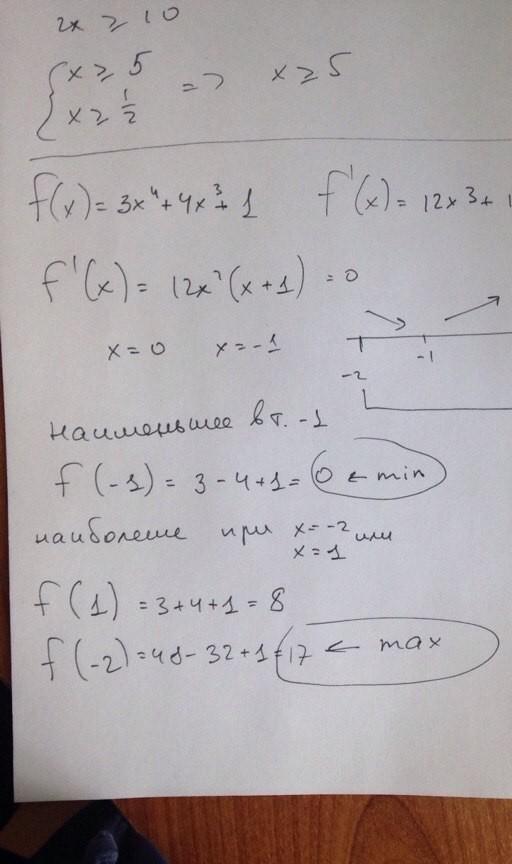 2x ≥ 10
{ x ≥ 5
x ≥ 1/2 => x ≥ 5
f(x) = 3x⁴ + 4x³ + 1 f'(x) = 12x³ + 1
f'(x) = 12x²(x + 1) = 0
x = 0 x = -1
-2 -1
наименьшее в т. -1
f(-1) = 3 - 4 + 1 = 0 ← min
наиболеше при x = -2 или
x = 1
f(1) = 3 + 4 + 1 = 8
f(-2) = 48 - 32 + 1 = 17 ← max